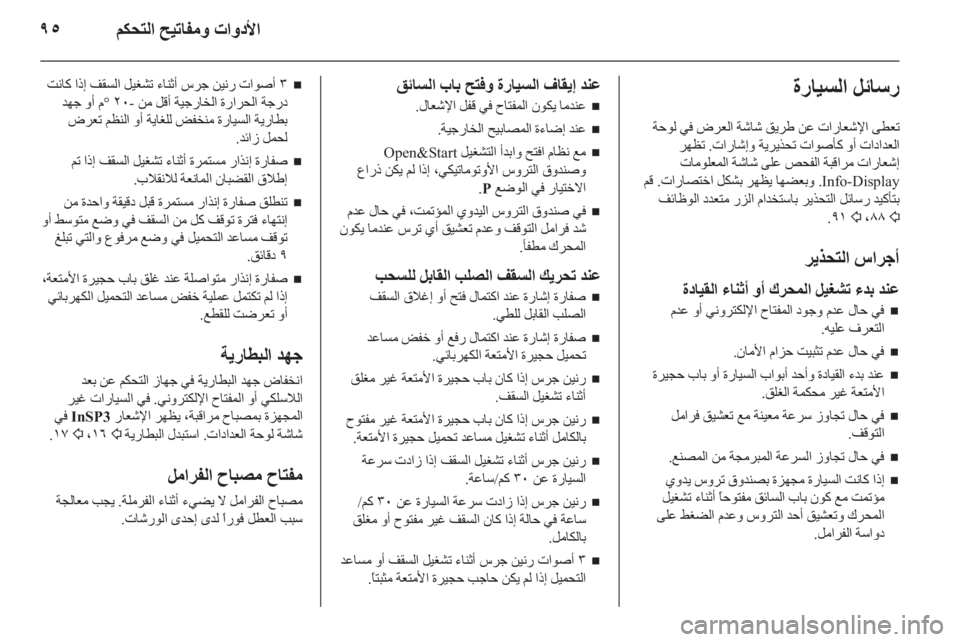 الأدوات ومفاتيح التحكم
٩٥
رسائل السيارة
تعطى الإشعارات عن طريق شاشة العرض في لوحة
العدادات أو كأصوات تحذيرية وإشارات. تظهر
إشعارات مراقبة الفحص على شاشة المعلومات
Info-Display. وبعضها يظهر بشكل اختصارات. قم
بتأكيد رسائل التحذير باستخدام الزر متعدد الوظائف
⇨ ٨٨، ⇨ ٩١.
أجراس التحذير
عند بدء تشغيل المحرك أو أثناء القيادة
■ في حال عدم وجود المفتاح الإلكتروني أو عدم
التعرف عليه.
■ في حال عدم تثبيت حزام الأمان.
■ عند بدء القيادة وأحد أبواب السيارة أو باب حجيرة
الأمتعة غير محكمة الغلق.
■ في حال تجاوز سرعة معينة مع تعشيق فرامل
التوقف.
■ في حال تجاوز السرعة المبرمجة من المصنع.
■ إذا كانت السيارة مجهزة بصندوق تروس يدوي
مؤتمت مع كون باب السائق مفتوحاً أثناء تشغيل
المحرك وتعشيق أحد التروس وعدم الضغط على
دواسة الفرامل.
عند إيقاف السيارة وفتح باب السائق
■ عندما يكون المفتاح في قفل الإشعال.
■ عند إضاءة المصابيح الخارجية.
■ مع نظام افتح وابدأ التشغيل Open&Start
وصندوق التروس الأوتوماتيكي، إذا لم يكن ذراع
الاختيار في الوضع P.
■ في صندوق التروس اليدوي المؤتمت، في حال عدم
شد فرامل التوقف وعدم تعشيق أي ترس عندما يكون
المحرك مطفأ.
عند تحريك السقف الصلب القابل للسحب
■ صفارة إشارة عند اكتمال فتح أو إغلاق السقف
الصلب القابل للطي.
■ صفارة إشارة عند اكتمال رفع أو خفض مساعد
تحميل حجيرة الأمتعة الكهربائي.
■ رنين جرس إذا كان باب حجيرة الأمتعة غير مغلق
أثناء تشغيل السقف.
■ رنين جرس إذا كان باب حجيرة الأمتعة غير مفتوح
بالكامل أثناء تشغيل مساعد تحميل حجيرة الأمتعة.
■ رنين جرس أثناء تشغيل السقف إذا زادت سرعة
السيارة عن ٣٠ كم/ساعة.
■ رنين جرس إذا زادت سرعة السيارة عن ٣٠ كم/
ساعة في حالة إذا كان السقف غير مفتوح أو مغلق
بالكامل.
■ ٣ أصوات رنين جرس أثناء تشغيل السقف أو مساعد
التحميل إذا لم يكن حاجب حجيرة الأمتعة مثبتاً.
■ ٣ أصوات رنين جرس أثناء تشغيل السقف إذا كانت
درجة الحرارة الخارجية أقل من -٢٠ °م أو جهد
بطارية السيارة منخفض للغاية أو النظم تعرض
لحمل زائد.
■ صفارة إنذار مستمرة أثناء تشغيل السقف إذا تم
إطلاق القضبان المانعة للانقلاب.
■ تنطلق صفارة إنذار مستمرة قبل دقيقة واحدة من
إنتهاء فترة توقف كل من السقف في وضع متوسط أو
توقف مساعد التحميل في وضع مرفوع والتي تبلغ
٩ دقائق.
■ صفارة إنذار متواصلة عند غلق باب حجيرة الأمتعة،
إذا لم تكتمل عملية خفض مساعد التحميل الكهربائي
أو تعرضت للقطع.
جهد البطارية
انخفاض جهد البطارية في جهاز التحكم عن بعد
اللاسلكي أو المفتاح الإلكتروني. في السيارات غير
المجهزة بمصباح مراقبة، يظهر الإشعار InSP3 في
شاشة لوحة العدادات. استبدل البطارية ⇨ ١٦، ⇨ ١٧.
مفتاح مصباح الفرامل
مصباح الفرامل لا يضيء أثناء الفرملة. يجب معالجة
سبب العطل فوراً لدى إحدى الورشات.